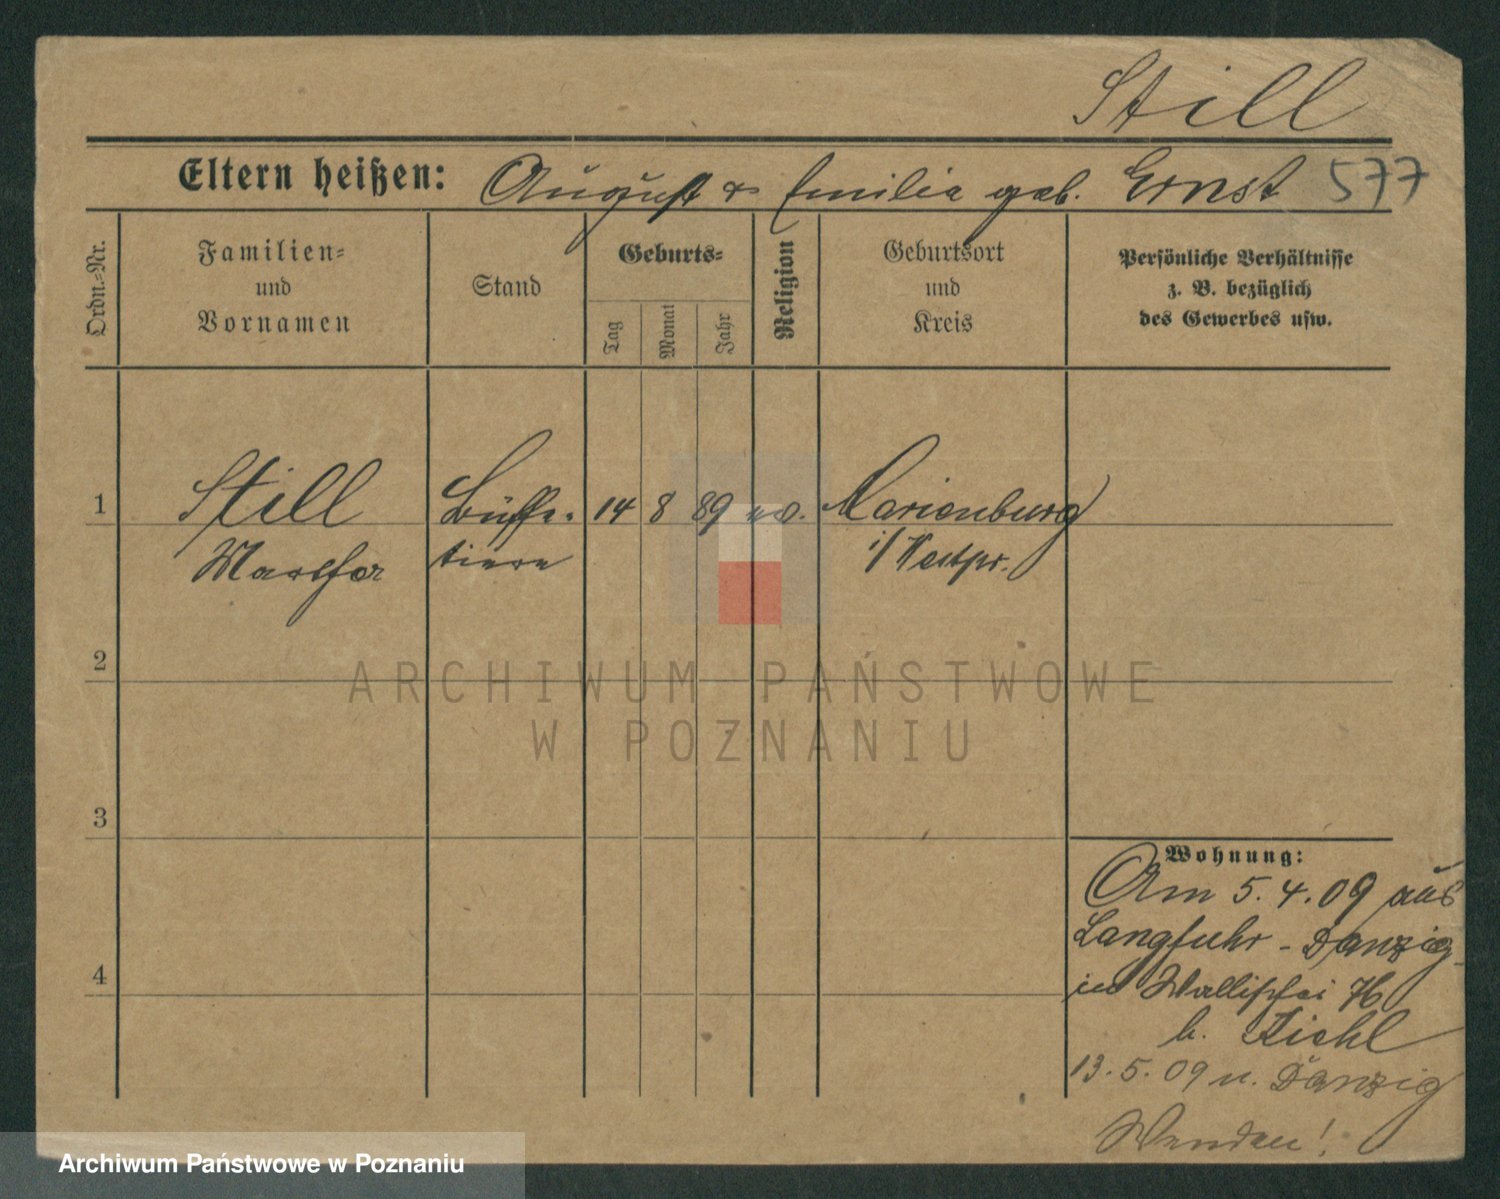 Still
Eltern heißen: August & Emilie geb. Ernst 577
Ordn.-Nr.
Familien-
und
Vornamen
Stand
Geburts-
Tag
Monat
Jahr
Religion
Geburtsort
und
Kreis
Persönliche Verhältnisse
z. B. bezüglich
des Gewerbes usw.
1 Still Büffe- 14 8 89 ev. Marienburg
tiere i/Westpr.
2
3
4
Wohnung:
Am 5.4.09 aus
Langfuhr - Danzig
in Wallischei 76
b. Ziehl
13.5.09 n. Danzig
Wenden!
ARCHIWUM PAŃSTWOWE
W POZNANIU
Archiwum Państwowe w Poznaniu